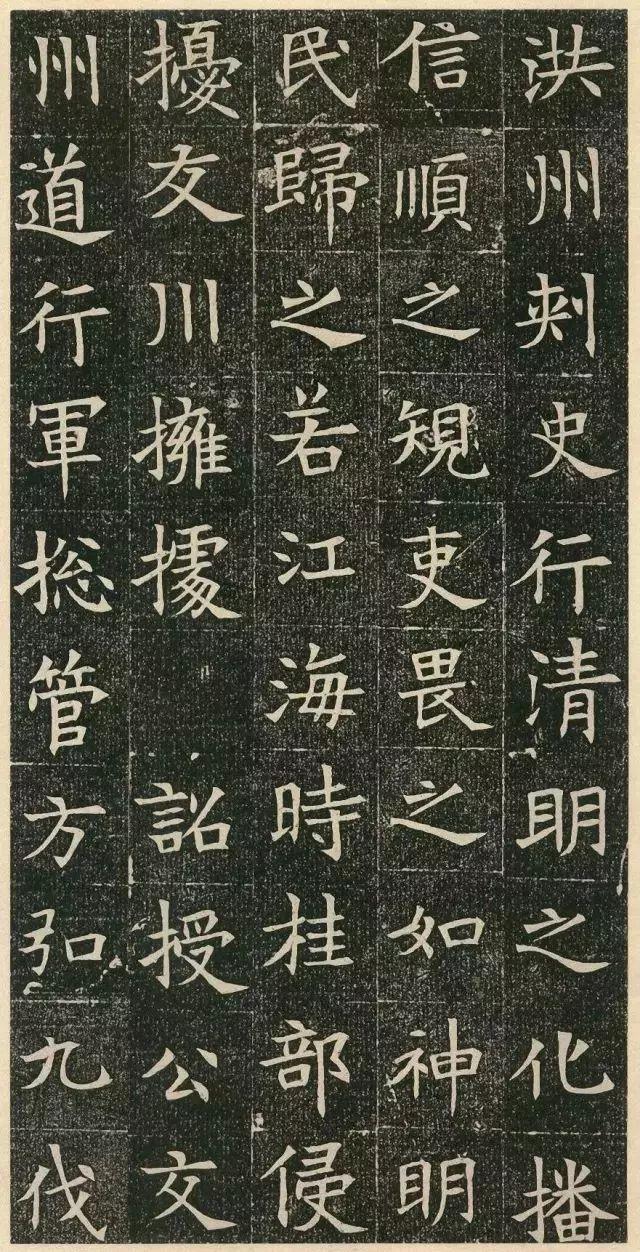 洲州刾史行清明之化播
信順之䂓吏畏之如神明
民歸之若江海時桂部侵
擾友川擁據 詔授公交
州道行軍捴管方弘九伐